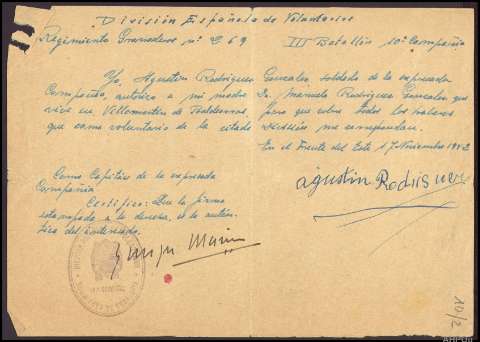 División Española de Voluntarios
Regimiento Granaderos nº 269 III Batallón 10ª Compañía
Yo, Agustín Rodríguez González, soldado de la expresada
Compañía, autorizo a mi madre Dª Manuela Rodríguez González que
vive en Villamontán de para que cobre todos los haberes
que como voluntario de la citada División me correspondan.
En el Frente del Este 17 Noviembre 1942
Como Capitán de la expresada
Compañía
Certifico: Que la firma
estampada a la derecha, es la autén-
tica del interesado.
Agustín Rodríguez
10/2